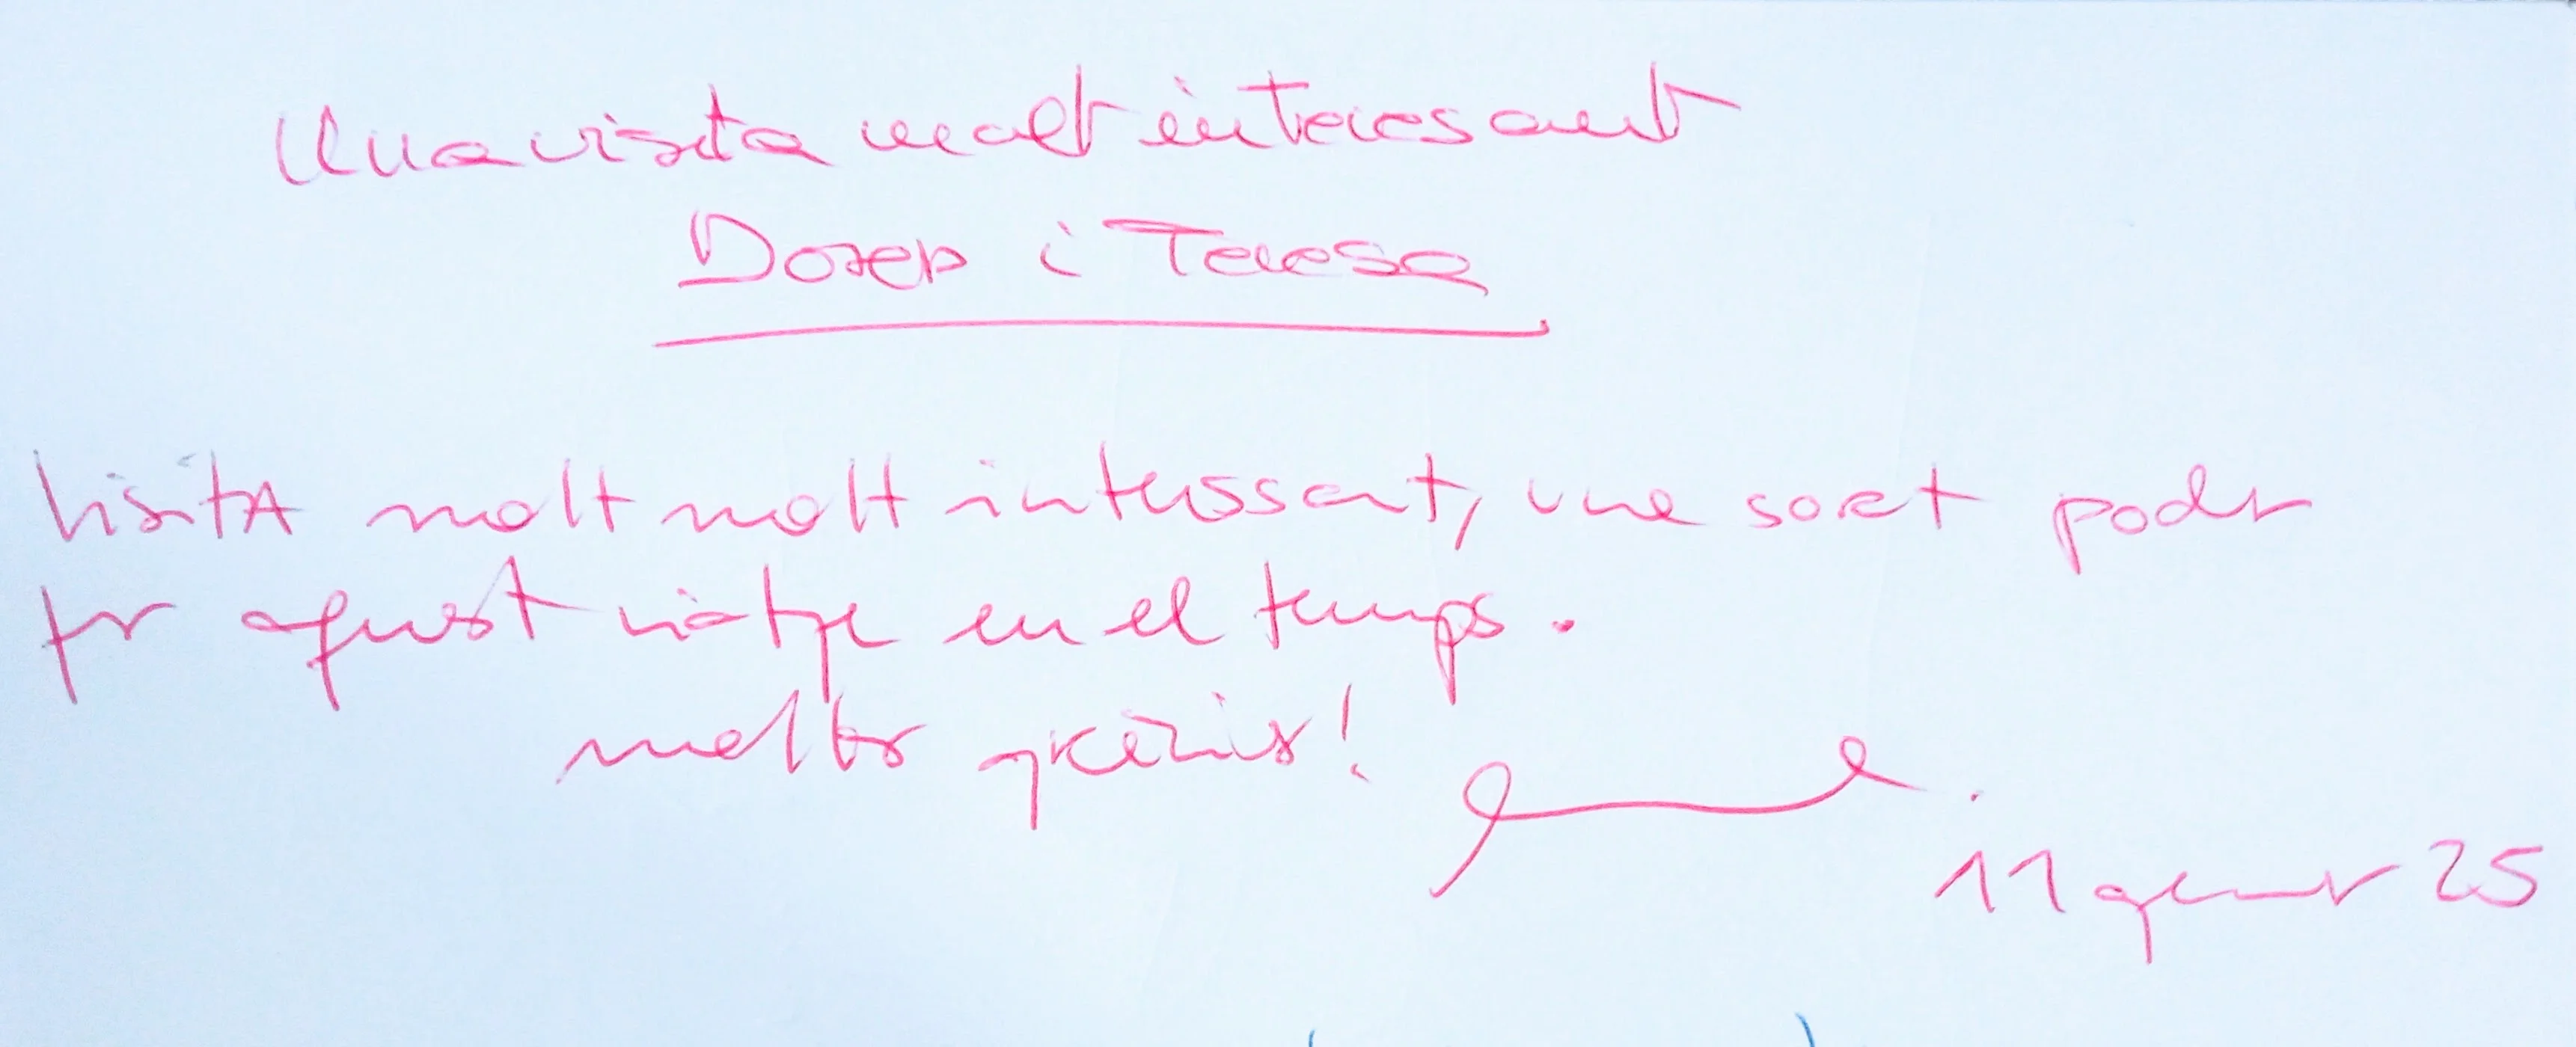 Una visita molt interesant
Josep i Teresa
Visita molt molt interessant, una sort poder
fer aquest viatge en el temps.
moltes gràcies!
11 gener 25